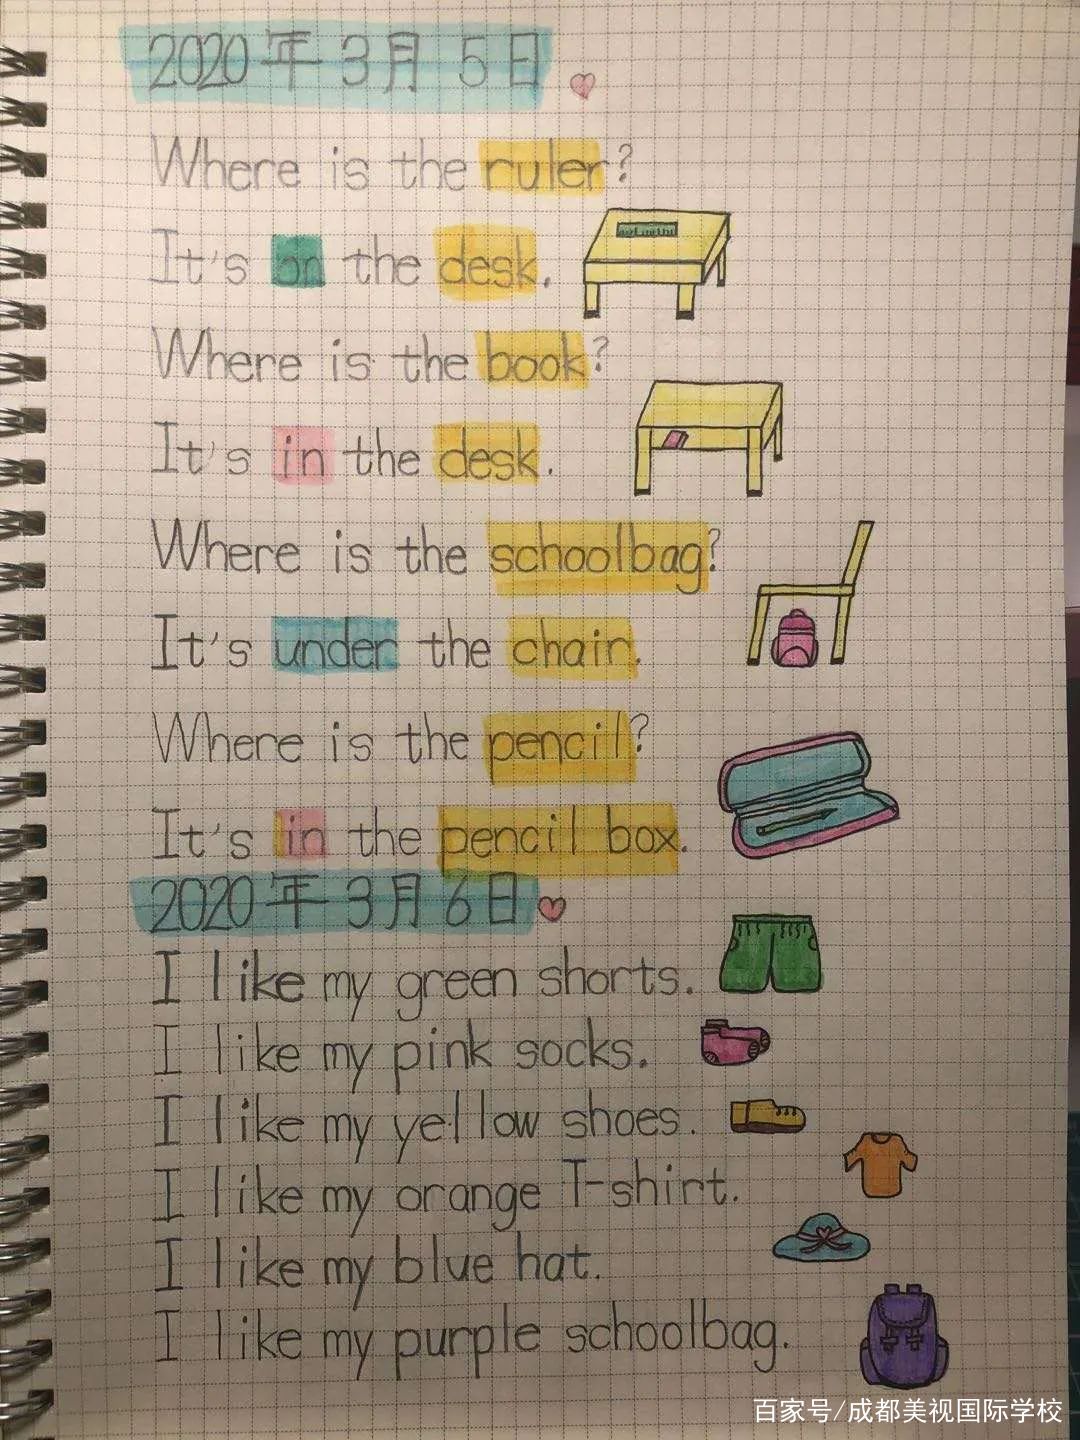 2020年3月5日
Where is the ruler?
It's on the desk.
Where is the book?
It's in the desk.
Where is the schoolbag?
It's under the chair.
Where is the pencil?
It's in the pencil box.
2020年3月6日
I like my green shorts.
I like my pink socks.
I like my yellow shoes.
I like my orange T-shirt.
I like my blue hat.
I like my purple schoolbag.
百家号/成都美视国际学校